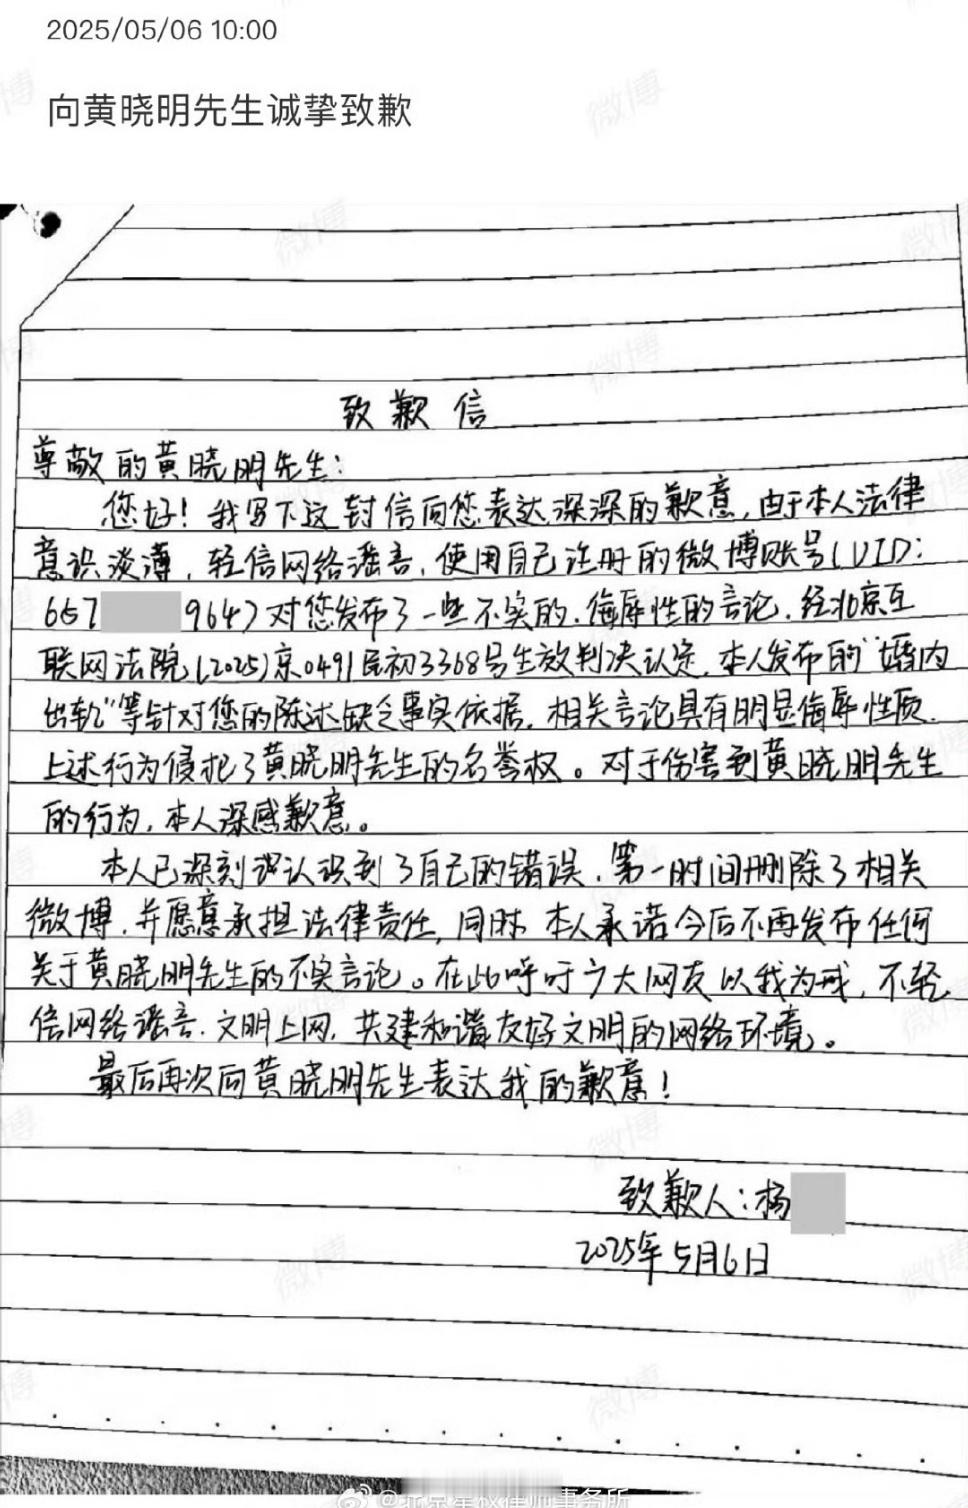 2025/05/06 10:00
向黄晓明先生诚挚致歉
致歉信
尊敬的黄晓明先生：
您好！我写下这封信向您表达深深的歉意，由于本人法律
意识淡薄，轻信网络谣言，使用自己注册的微博账号（UID：
657 9647）对您发布了一些不实的、侮辱性的言论，经北京互
联网法院（2025）京0491民初3368号生效判决认定，本人发布的“婚内
出轨”等针对您的陈述缺乏事实依据，相关言论具有明显侮辱性质，
上述行为侵犯了黄晓明先生的名誉权。对于伤害到黄晓明先生
的行为，本人深感歉意。
本人已深刻认识到了自己的错误，第一时间删除了相关
微博，并愿意承担法律责任，同时，本人承诺今后不再发布任何
关于黄晓明先生的不实言论。在此呼吁广大网友以我为戒，不轻
信网络谣言，文明上网，共建和谐友好文明的网络环境。
最后再次向黄晓明先生表达我的歉意！
致歉人：杨
2025年5月6日
微博
律师事务所